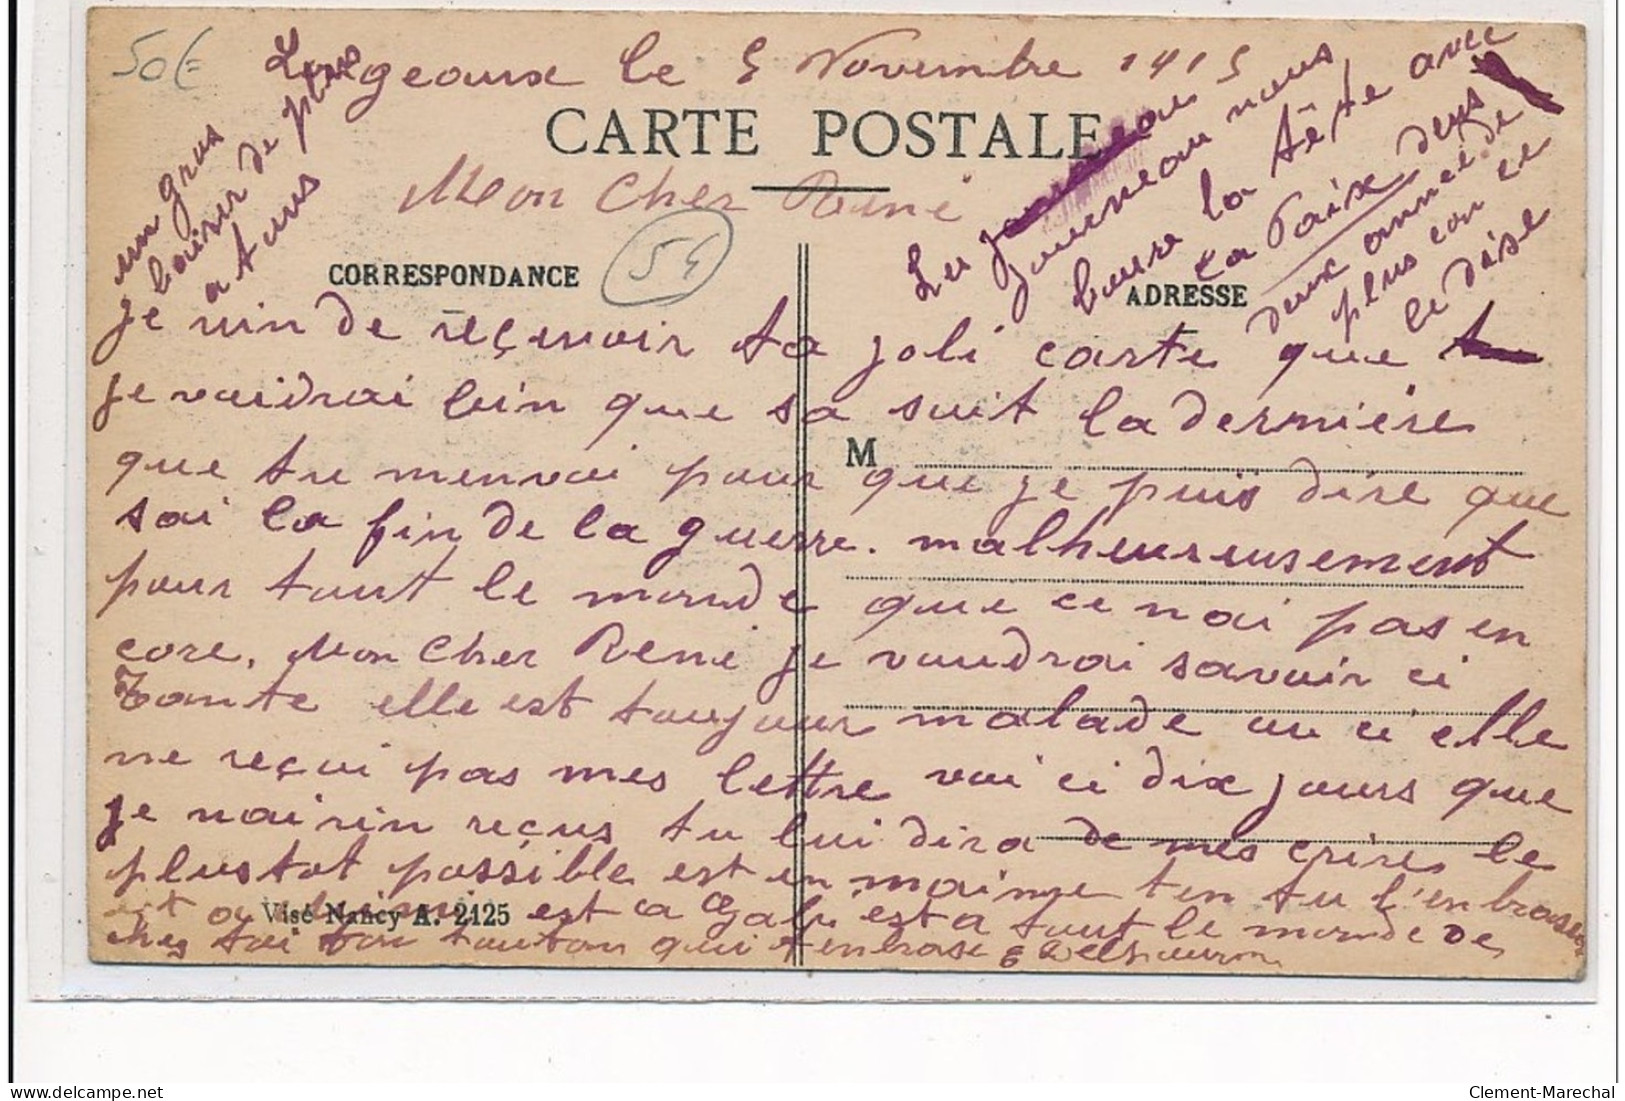 50€
Longeaux le 5 Novembre 1915
CARTE POSTALE
Mon Cher René
54
CORRESPONDANCE
ADRESSE
M
un gros
baiser de plus
a tous
Le
journeau nous
boure la tête avec
la Paix deux
deux année de
plus con ce
le dise
je vin de reçevoir ta joli carte que
je voidrai bin que sa suit la dernière
que tu menvoi pour que je puis dire que
sai la fin de la guerre. malheureusement
pour tout le monde que ce nai pas en
core. Mon Cher René je voudrai savoir ci
Tante elle est toujour malade ou ci elle
ne reçui pas mes lettre voi ci dix jours que
je nai rin reçus tu lui dira de mes crire le
plustot possible est en mainme ten tu l'enbrasera
est a tout le monde de
chez toi ton tonton qui t'enbrase
Visé Nancy A. 2125
Clement-Marechal